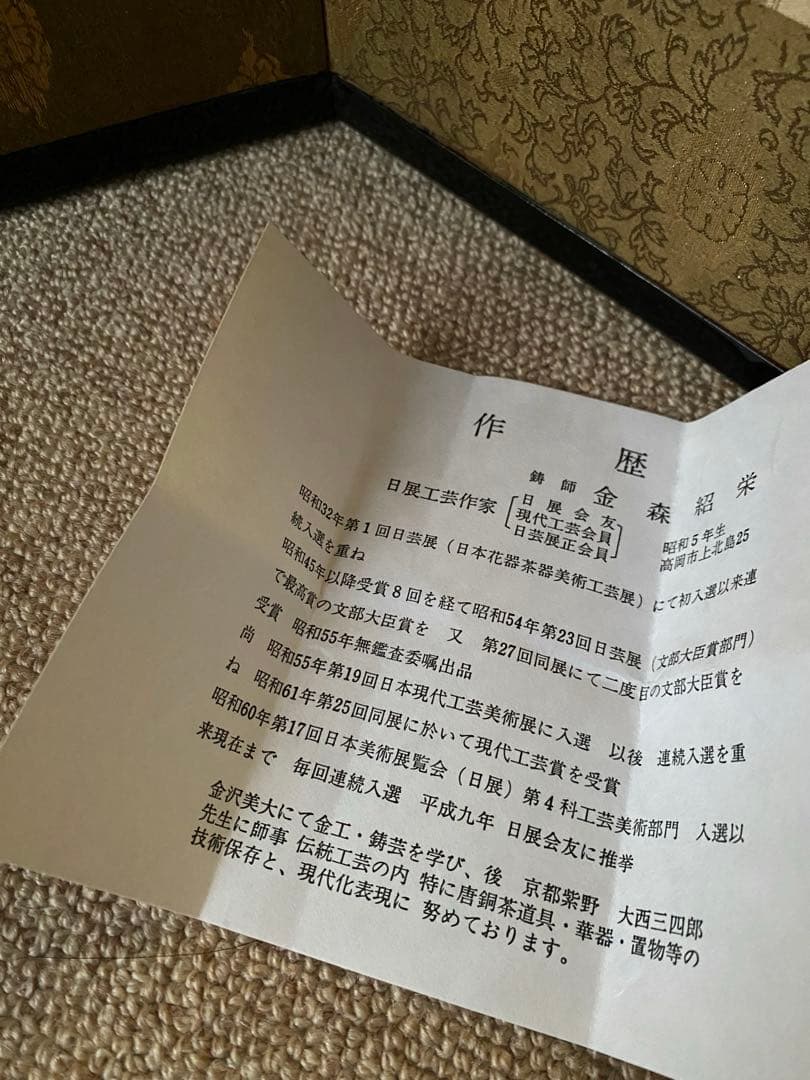 作歴
鋳師 金森紹栄
日展工芸作家 [日展会友 現代工芸会員 日芸展正会員] 昭和5年生 高岡市上北島25
昭和32年第1回日芸展（日本花器茶器美術工芸展）にて初入選以来連
続入選を重ね
昭和45年以降受賞8回を経て昭和54年第23回日芸展（文部大臣賞部門）
で最高賞の文部大臣賞を 又 第27回同展にて二度目の文部大臣賞を
受賞 昭和55年無鑑査委嘱出品
尚 昭和55年第19回日本現代工芸美術展に入選 以後 連続入選を重
ね 昭和61年第25回同展に於いて現代工芸賞を受賞
昭和60年第17回日本美術展覧会（日展）第4科工芸美術部門 入選以
来現在まで 毎回連続入選 平成九年 日展会友に推挙
金沢美大にて金工・鋳芸を学び、後 京都紫野 大西三四郎
先生に師事 伝統工芸の内 特に唐銅茶道具・華器・置物等の
技術保存と、現代化表現に 努めております。